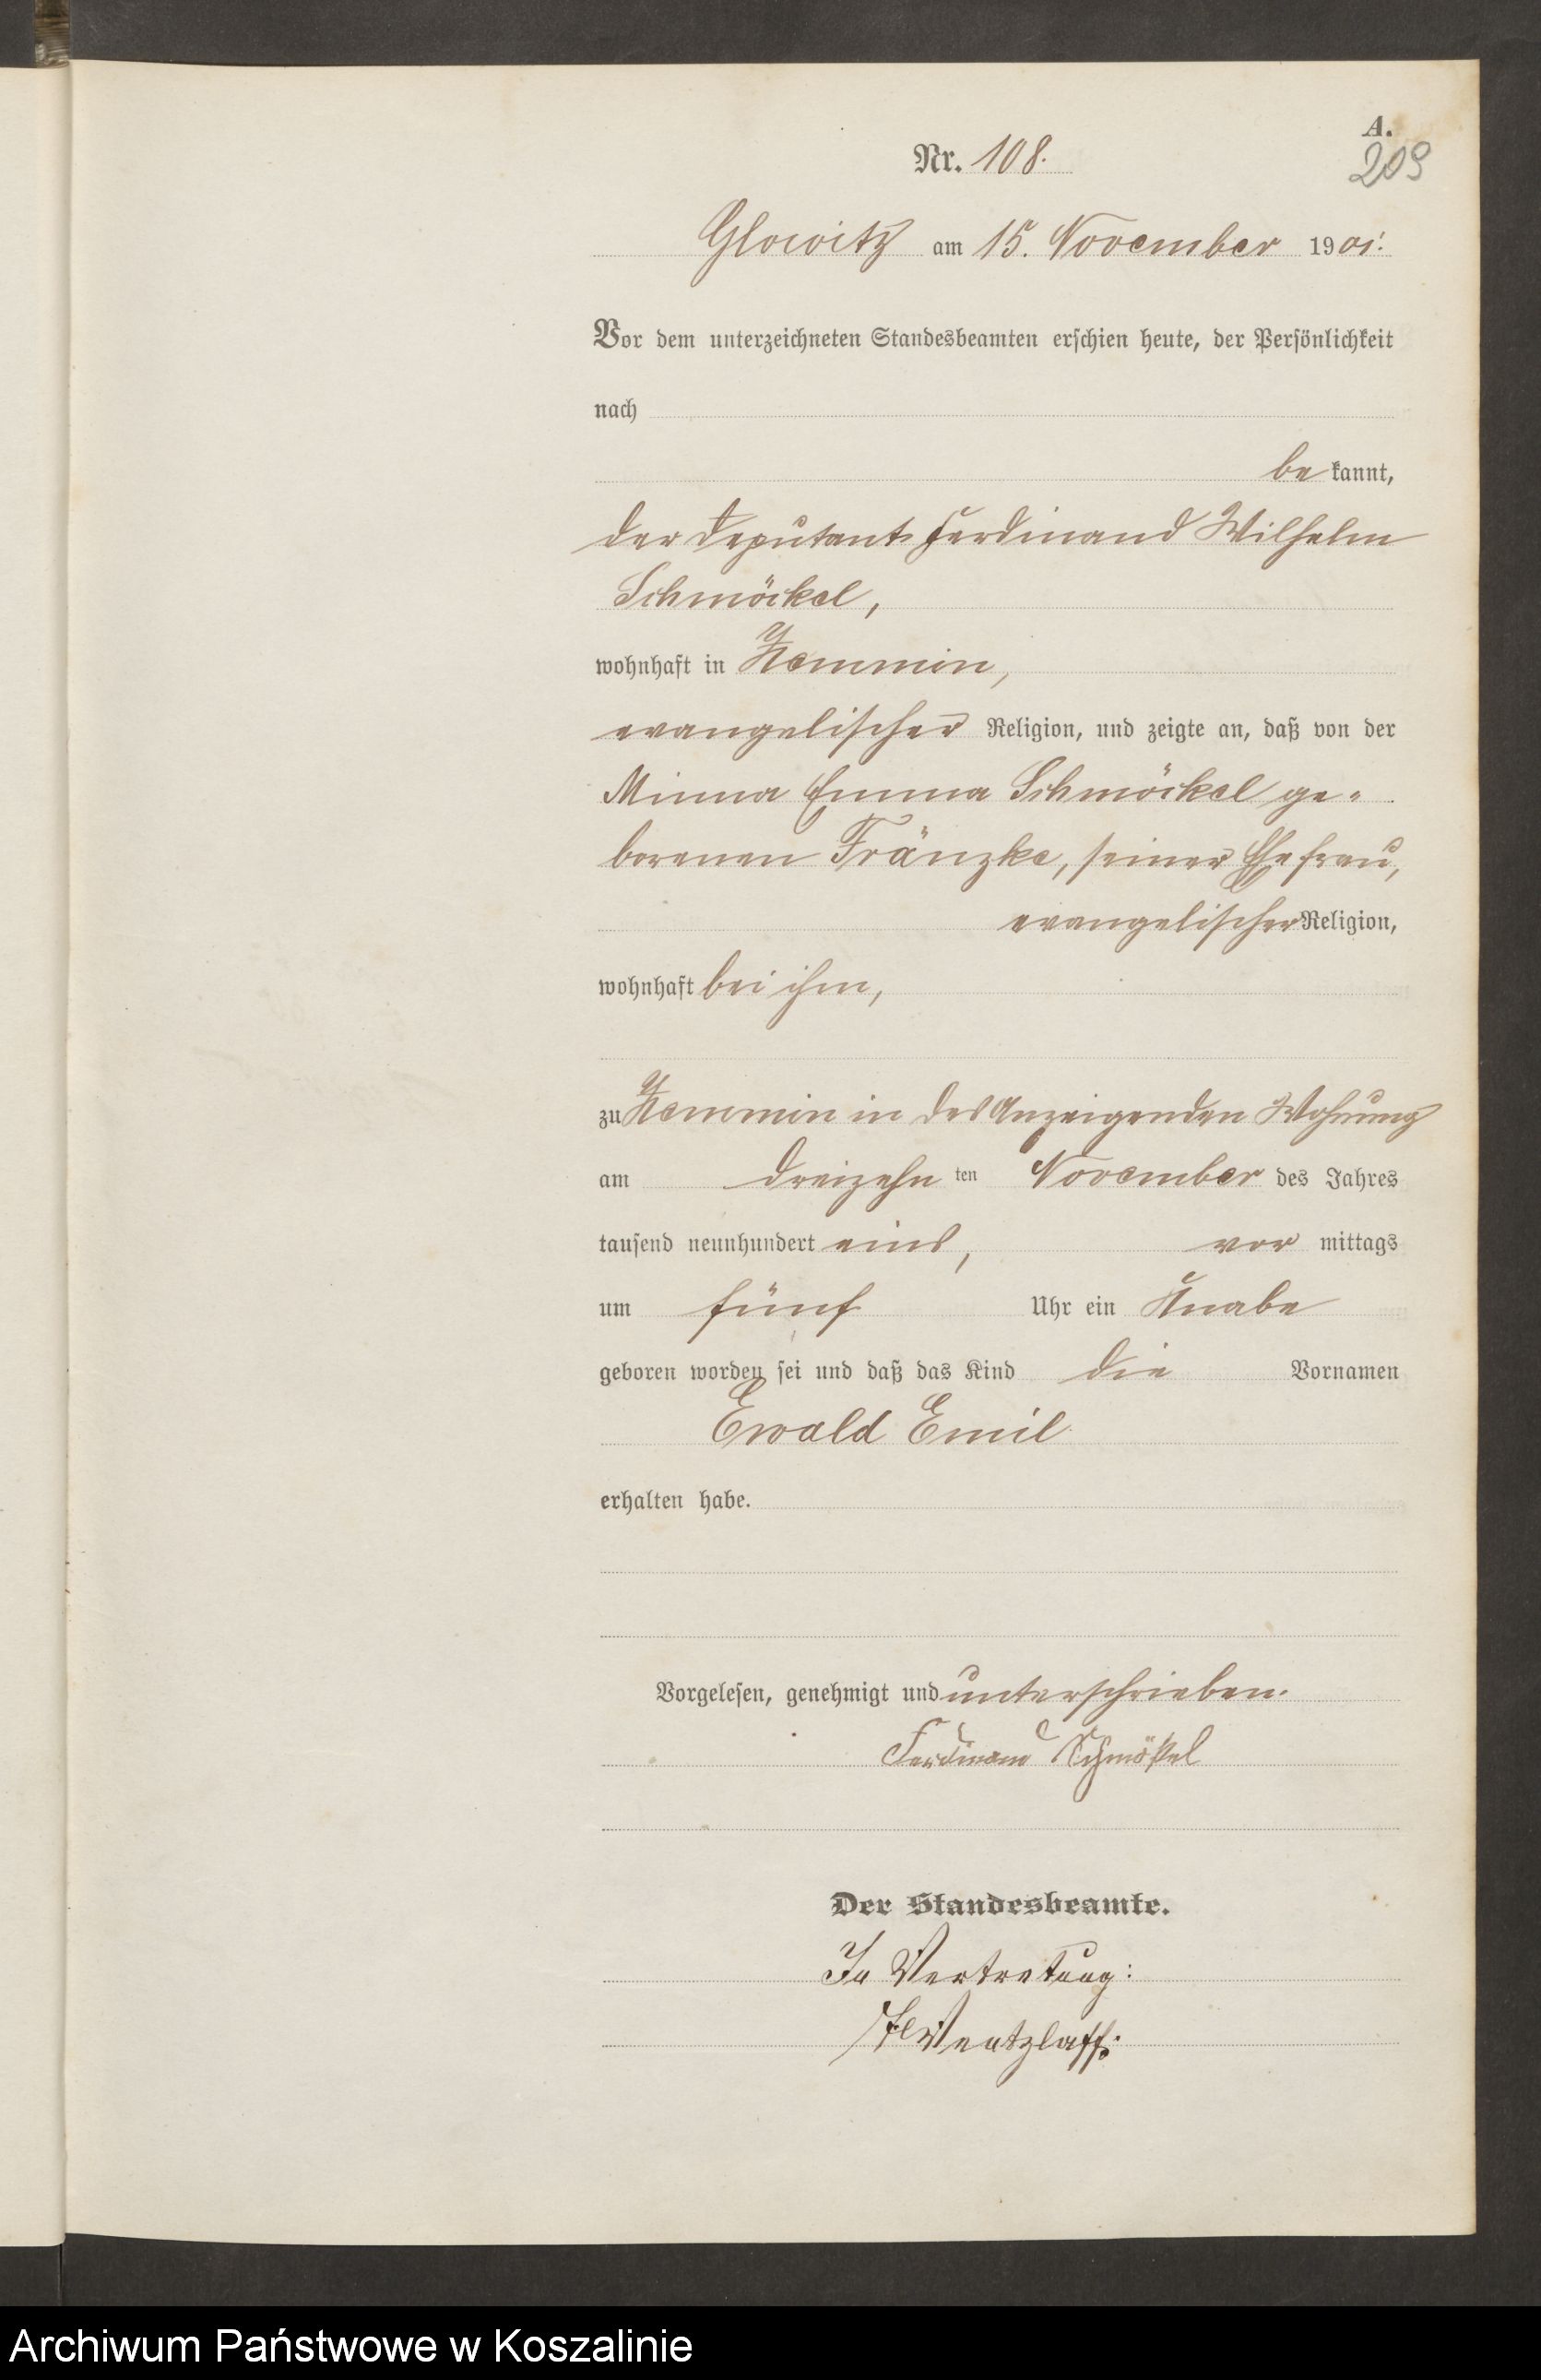 A.
Nr. 108.
209
Glowitz am 15. November 1901.
Vor dem unterzeichneten Standesbeamten erschien heute, der Persönlichkeit
nach
be kannt,
der Deputant Ferdinand Wilhelm
Schmöckel,
wohnhaft in Zemmin,
evangelischer Religion, und zeigte an, daß von der
Minna Emma Schmöckel ge-
borenen Fränzke, seiner Ehefrau,
evangelischer Religion,
wohnhaft bei ihm,
zu Zemmin in des Anzeigenden Wohnung
am dreizehn ten November des Jahres
tausend neunhundert eins, vor mittags
um fünf Uhr ein Knabe
geboren worden sei und daß das Kind die Vornamen
Ewald Emil
erhalten habe.
Vorgelesen, genehmigt und unterschrieben.
Ferdinand Schmökel
Der Standesbeamte.
In Vertretung:
Wentzlaff.
Archiwum Państwowe w Koszalinie